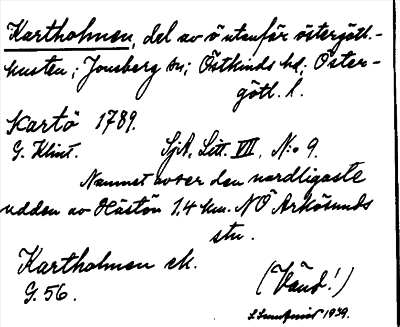 Kartholmen, del av ö utanför östergötl.-
kusten; Jonsberg sn; Östkinds hd; Öster-
götl. l.
Kartö 1789.
G. Klint. SjA, Litt. VII, N:o 9.
Namnet avser den nordligaste
udden av Hästön 1,4 km. NÖ Arkösunds
stn.
Kartholmen ek.
G. 56. (Vänd!)
1939.